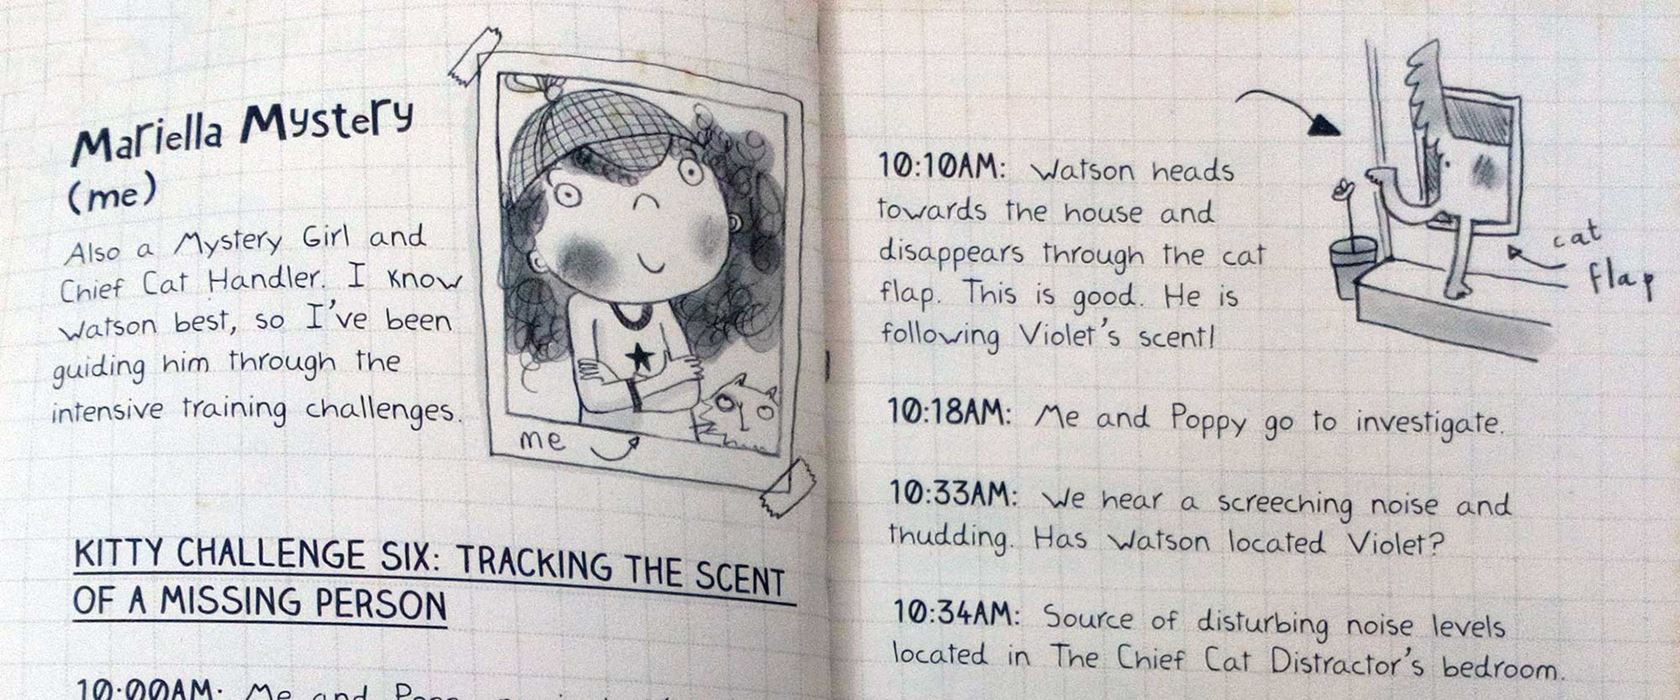 Mariella Mystery
(me)
Also a Mystery Girl and
Chief Cat Handler. I know
Watson best, so I've been
guiding him through the
intensive training challenges.
me
KITTY CHALLENGE SIX: TRACKING THE SCENT
OF A MISSING PERSON
10:00AM: Me and
10:10AM: Watson heads
towards the house and
disappears through the cat
flap. This is good. He is
following Violet's scent!
cat
flap
10:18AM: Me and Poppy go to investigate.
10:33AM: We hear a screeching noise and
thudding. Has Watson located Violet?
10:34AM: Source of disturbing noise levels
located in The Chief Cat Distractor's bedroom.